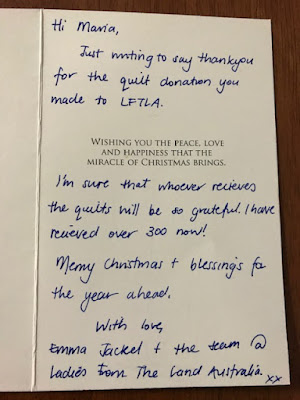 Hi Maria,
Just writing to say thankyou
for the quilt donation you
made to LFTLA.
WISHING YOU THE PEACE, LOVE
AND HAPPINESS THAT THE
MIRACLE OF CHRISTMAS BRINGS.
I'm sure that whoever recieves
the quilts will be so grateful. I have
recieved over 300 now!
Merry Christmas + blessings for
the year ahead.
With love,
Emma Jackel + the team @
Ladies From The Land Australia.
xx